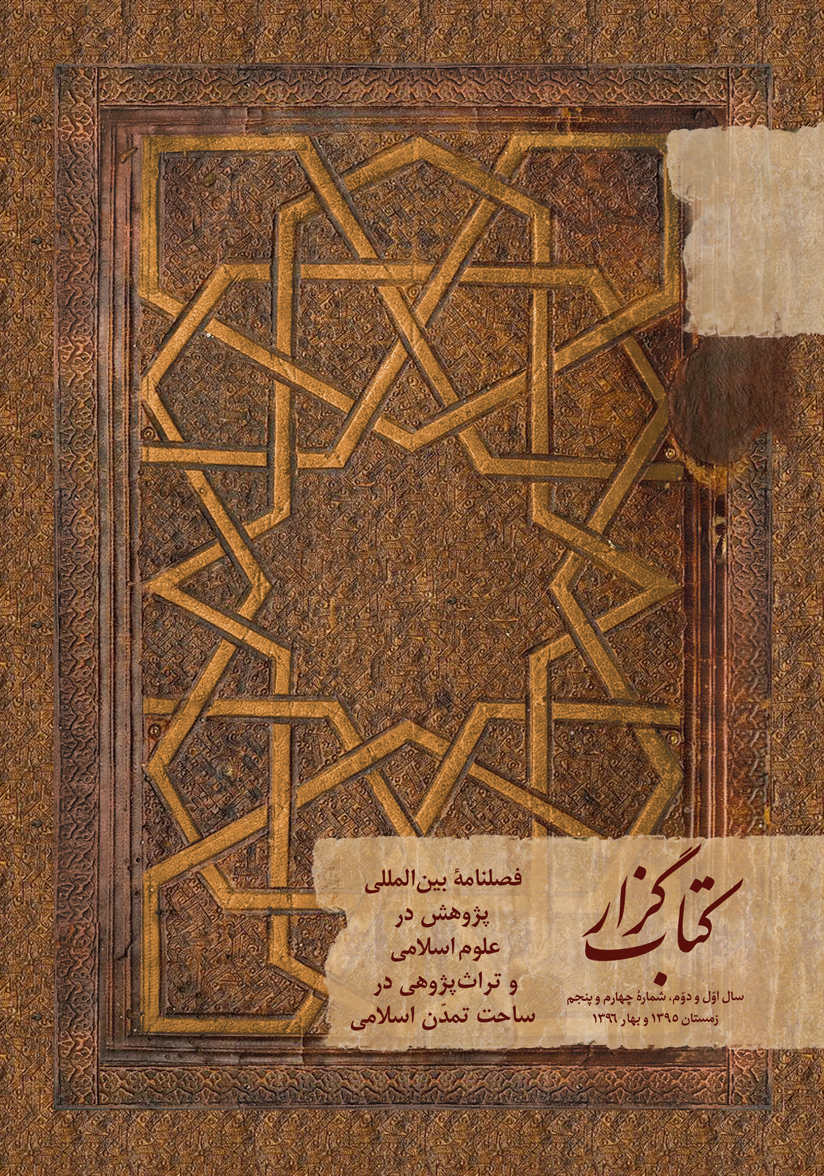 کتاب گزار
سال اوّل و دوّم، شمارهٔ چهارم و پنجم
زمستان ۱۳۹۵ و بهار ۱۳۹۶
فصلنامهٔ بین‌المللی
پژوهش در
علوم اسلامی
و تراث‌پژوهی در
ساحت تمدّن اسلامی